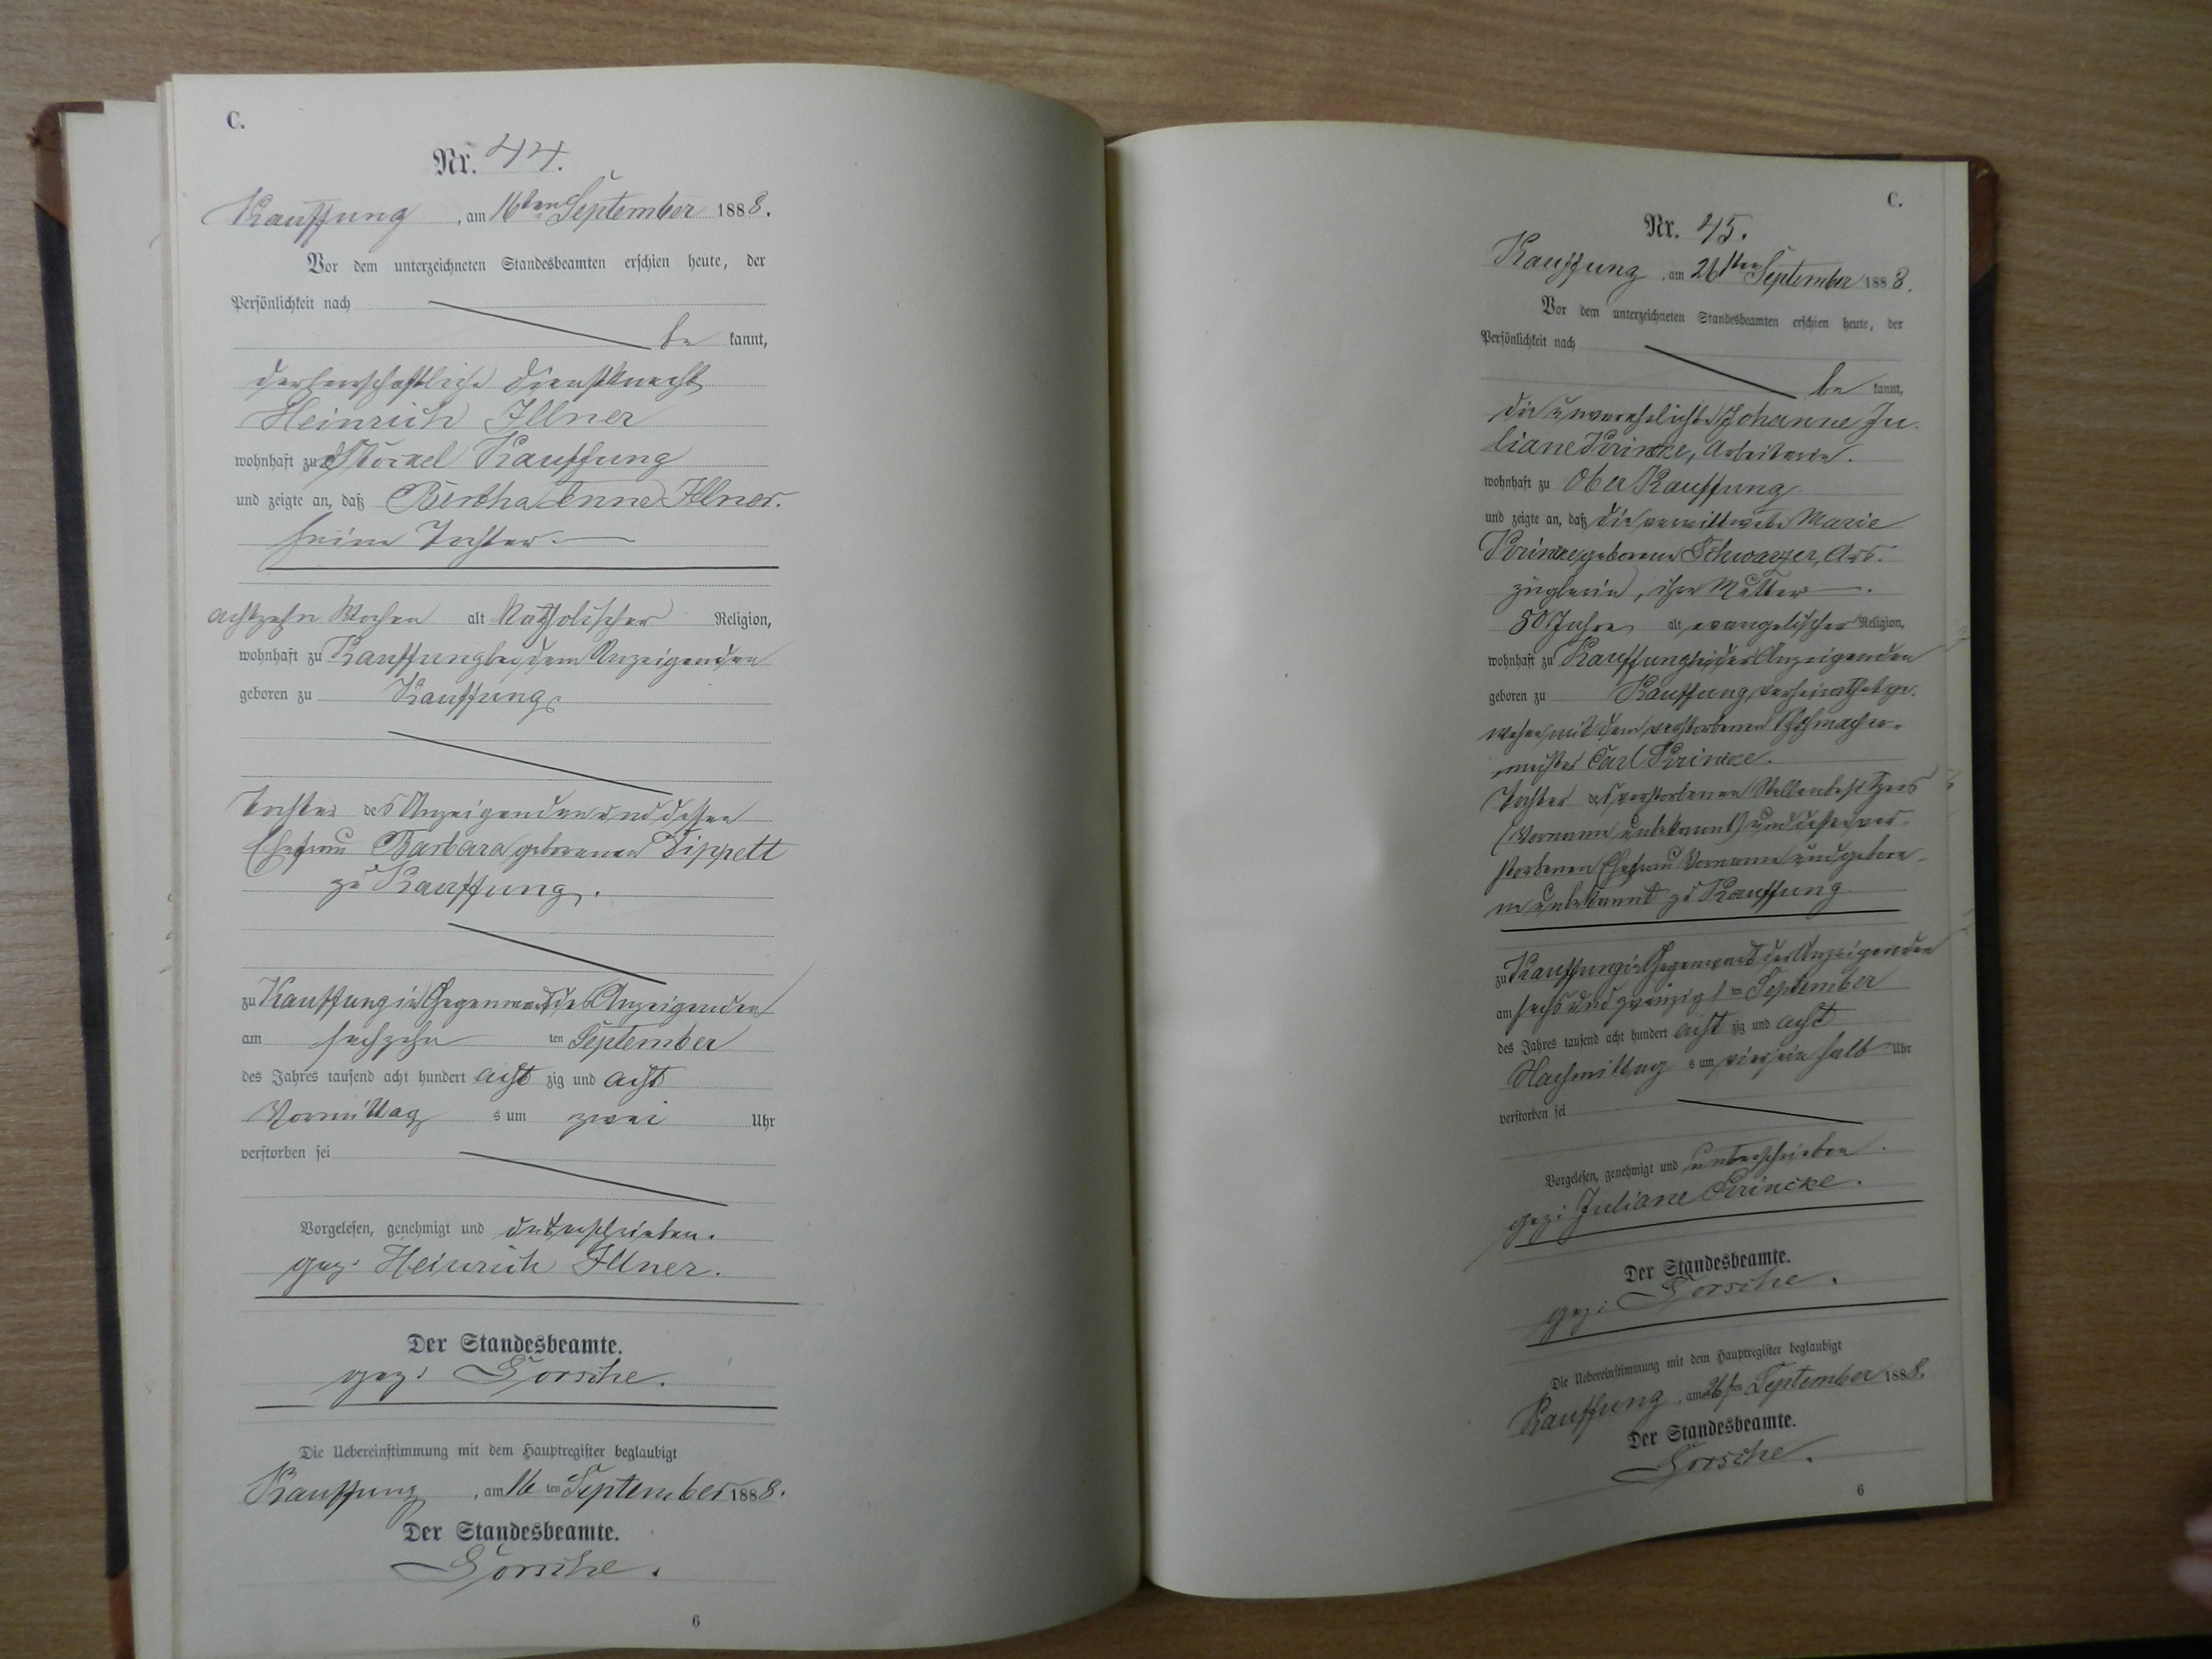 C.
Nr. 44.
Kauffung, am 16ten September 1888.
Vor dem unterzeichneten Standesbeamten erschien heute, der
Persönlichkeit nach
be kannt,
der herrschaftliche Dienstknecht
Heinrich Illner
wohnhaft zu Kauffung
und zeigte an, daß Bertha Anna Illner.
seine Tochter.
achtzehn Wochen alt katholischer Religion,
wohnhaft zu Kauffung bei dem Anzeigenden
geboren zu Kauffung
Tochter des Anzeigenden und dessen
Ehefrau Barbara geborenen Tippelt
zu Kauffung.
zu Kauffung in Gegenwart des Anzeigenden
am sechzehn ten September
des Jahres tausend acht hundert acht zig und acht
Vormittag s um zwei Uhr
verstorben sei
Vorgelesen, genehmigt und unterschrieben.
gez: Heinrich Illner.
Der Standesbeamte.
gez: Gorsche.
Die Uebereinstimmung mit dem Hauptregister beglaubigt
Kauffung, am 16 ten September 1888.
Der Standesbeamte.
Gorsche.
6
C.
Nr. 45.
Kauffung, am 26ten September 1888.
Vor dem unterzeichneten Standesbeamten erschien heute, der
Persönlichkeit nach
be kannt,
die unverehelichte Johanne Ju
liane Krincke, Arbeiterin.
wohnhaft zu Ober Kauffung
und zeigte an, daß die verwittwete Marie
Krincke geborene Schwarzer, Aus.
züglerin, ihre Mutter.
80 Jahre alt evangelischer Religion,
wohnhaft zu Kauffung bei der Anzeigenden
geboren zu Kauffung, verheirathet ge.
wesen mit dem verstorbenen
meister Carl Krincke.
Tochter des verstorbenen Stellenbesitzers
(Vorname unbekannt) und dessen ver-
storbenen Ehefrau Vorname und gebore-
ne unbekannt zu Kauffung.
zu Kauffung in Gegenwart der Anzeigenden
am sechs und zwanzigs ten September
des Jahres tausend acht hundert acht zig und acht
Nachmittag s um vier ein halb Uhr
verstorben sei
Vorgelesen, genehmigt und unterschrieben.
gez: Juliane Krincke.
Der Standesbeamte.
gez: Gorsche.
Die Uebereinstimmung mit dem Hauptregister beglaubigt
Kauffung, am 26 ten September 1888.
Der Standesbeamte.
Gorsche.
6